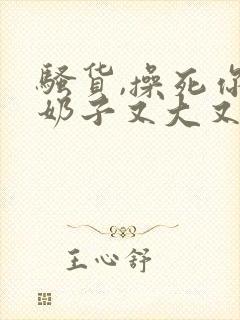 骚货,操死你
奶子又大又
王心舒